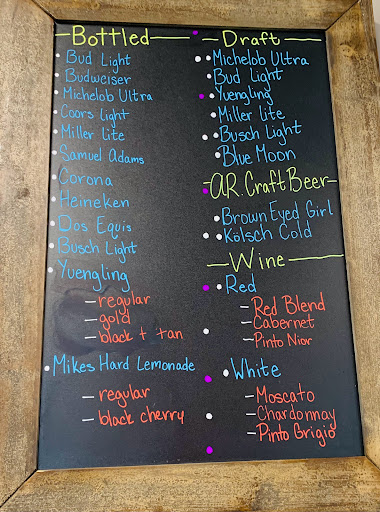 Bottled
Bud Light
Budweiser
Michelob Ultra
Coors Light
Miller Lite
Samuel Adams
Corona
Heineken
Dos Equis
Busch Light
Yuengling
- regular
- gold
- black + tan
Mikes Hard Lemonade
- regular
- black cherry
Draft
Michelob Ultra
Bud Light
Yuengling
Miller Lite
Busch Light
Blue Moon
AR. Craft Beer
Brown Eyed Girl
Kölsch Cold
Wine
Red
- Red Blend
- Cabernet
- Pinto Nior
White
- Moscato
- Chardonnay
- Pinto Grigio